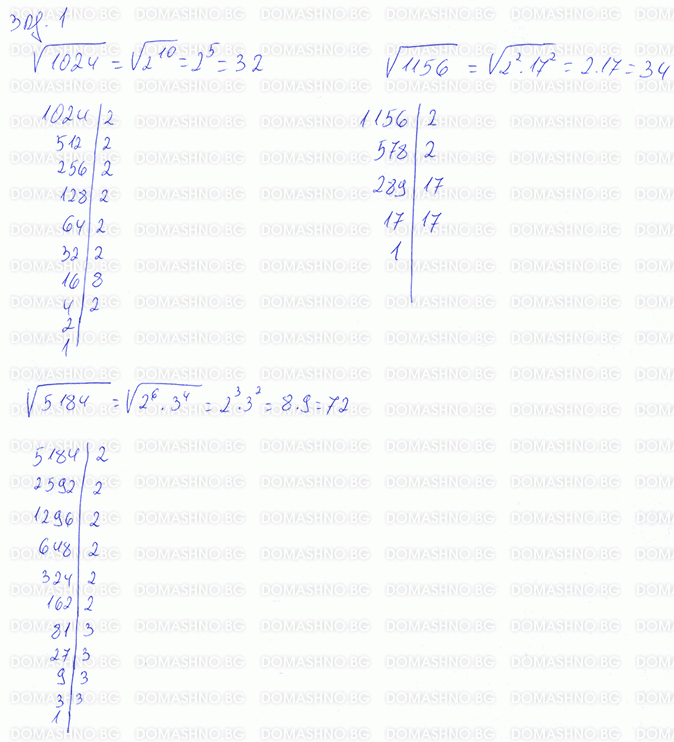 зад. 1
√1024 = √2^10 = 2^5 = 32
1024 | 2
512 | 2
256 | 2
128 | 2
64 | 2
32 | 2
16 | 8
4 | 2
2 |
1 |
√1156 = √2^2 . 17^2 = 2.17 = 34
1156 | 2
578 | 2
289 | 17
17 | 17
1 |
√5184 = √2^6 . 3^4 = 2^3 . 3^2 = 8.9 = 72
5184 | 2
2592 | 2
1296 | 2
648 | 2
324 | 2
162 | 2
81 | 3
27 | 3
9 | 3
3 | 3
1 |
DOMASHNO.BG